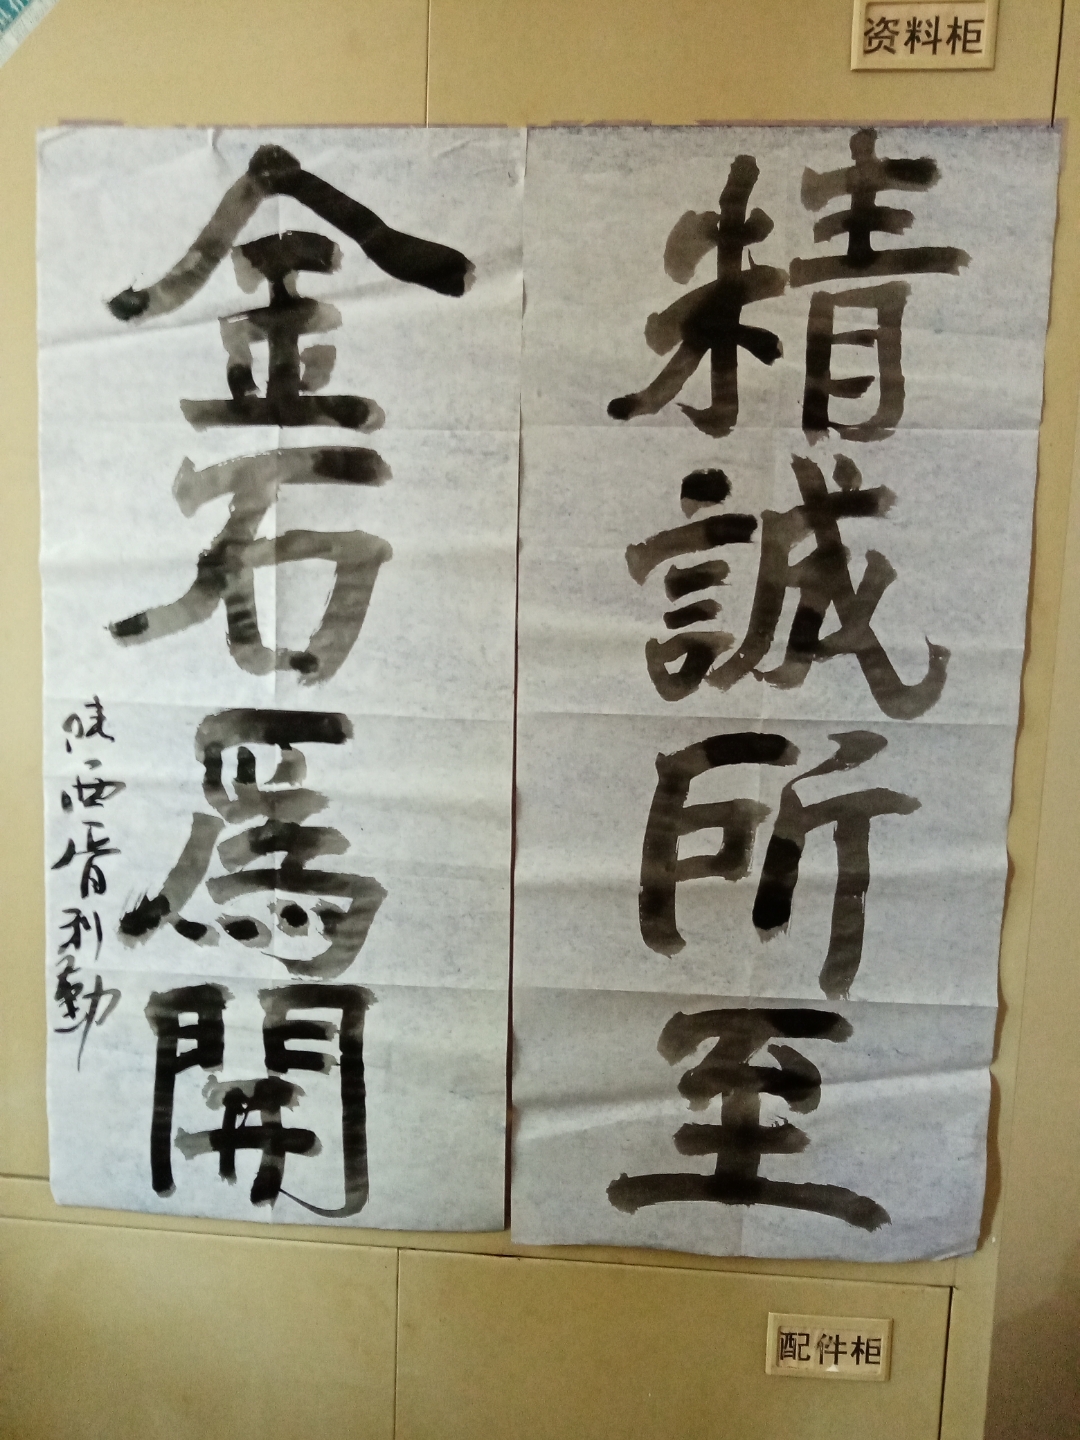 资料柜
精誠所至
金石爲開
陕西胥利勤
配件柜